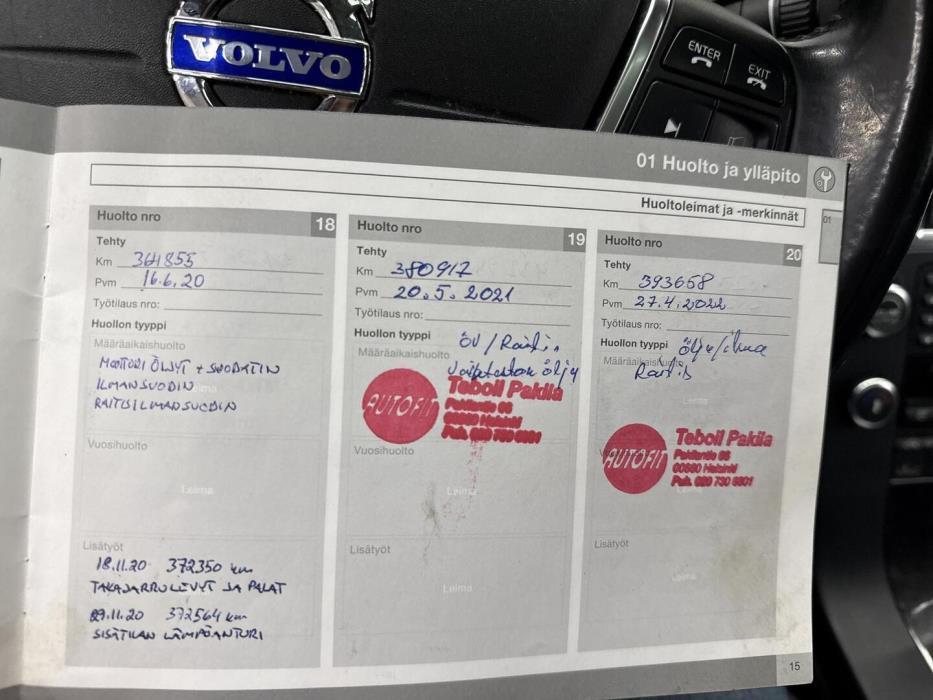 VOLVO
ENTER
EXIT
01 Huolto ja ylläpito
Huoltoleimat ja -merkinnät
01
Huolto nro 18
Tehty
Km 364855
Pvm 16.6.20
Työtilaus nro:
Huollon tyyppi
Määräaikaishuolto
MOOTTORI ÖLJYT + SUODATIN
ILMANSUODIN
RAITISILMANSUODIN
Leima
Vuosihuolto
Leima
Lisätyöt
18.11.20 372350 km
TAKAJARRULEVYT JA PALAT
29.11.20 372564 km
SISÄTILAN LÄMPÖANTURI
Huolto nro 19
Tehty
Km 380917
Pvm 20.5.2021
Työtilaus nro:
Huollon tyyppi
Määräaikaishuolto
öv / Raitis
öljy
AUTOFIT
Teboil Pakila
Pakilantie 66
00660 Helsinki
Puh. 020 730 6601
Vuosihuolto
Leima
Lisätyöt
Leima
Huolto nro 20
Tehty
Km 393658
Pvm 27.4.2022
Työtilaus nro:
Huollon tyyppi
Määräaikaishuolto
öljy/ilma
Raitis
Leima
AUTOFIT
Teboil Pakila
Pakilantie 66
00660 Helsinki
Puh. 020 730 6601
Lisätyöt
Leima
15